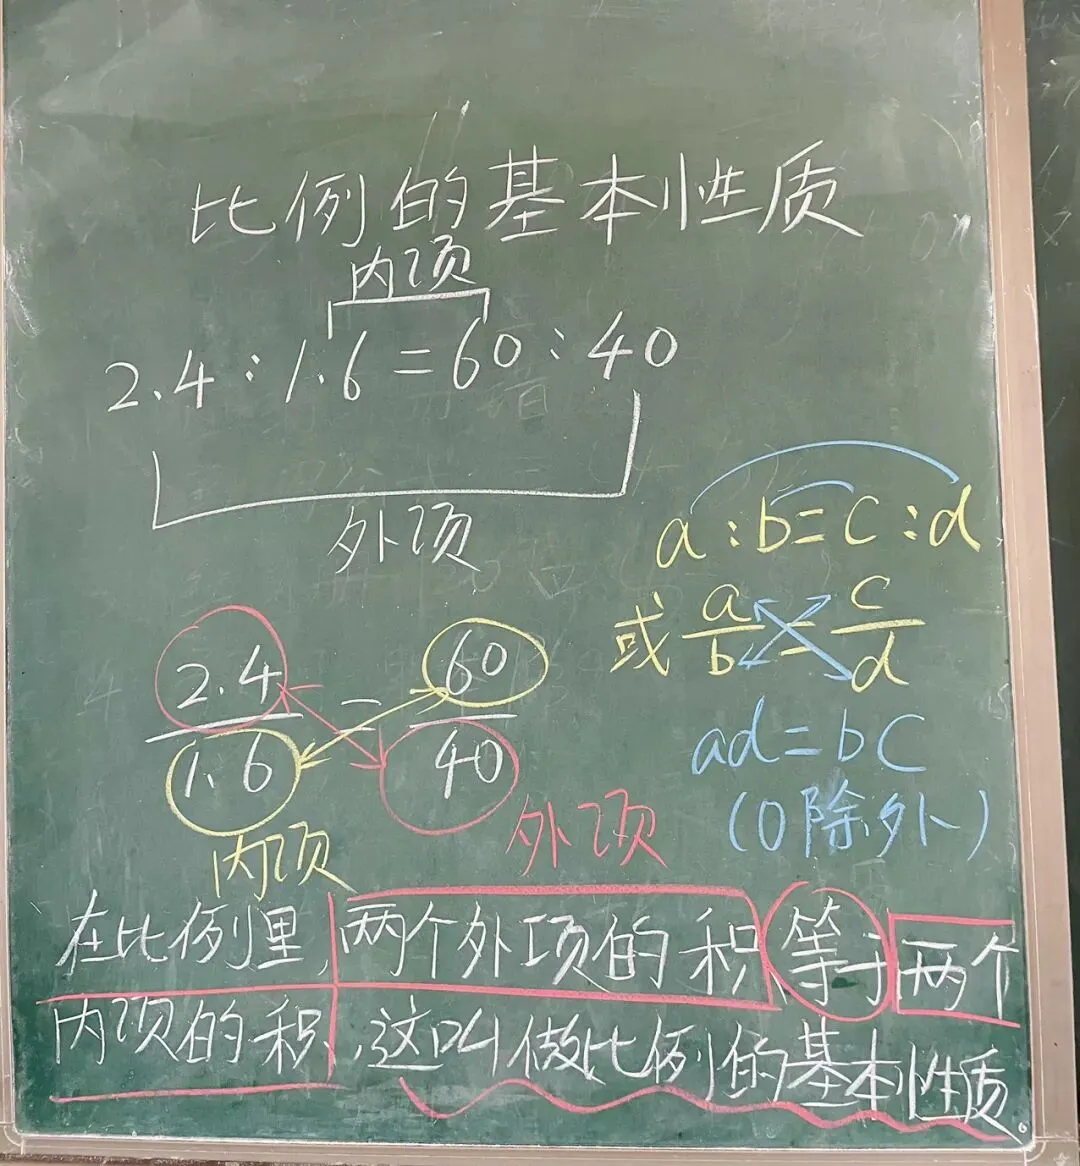 比例的基本性质
内项
2.4:1.6=60:40
外项
a:b=c:d
或 a/b=c/d
2.4/1.6=60/40
ad=bc
(0除外)
内项 外项
在比例里,两个外项的积等于两个
内项的积,这叫做比例的基本性质。